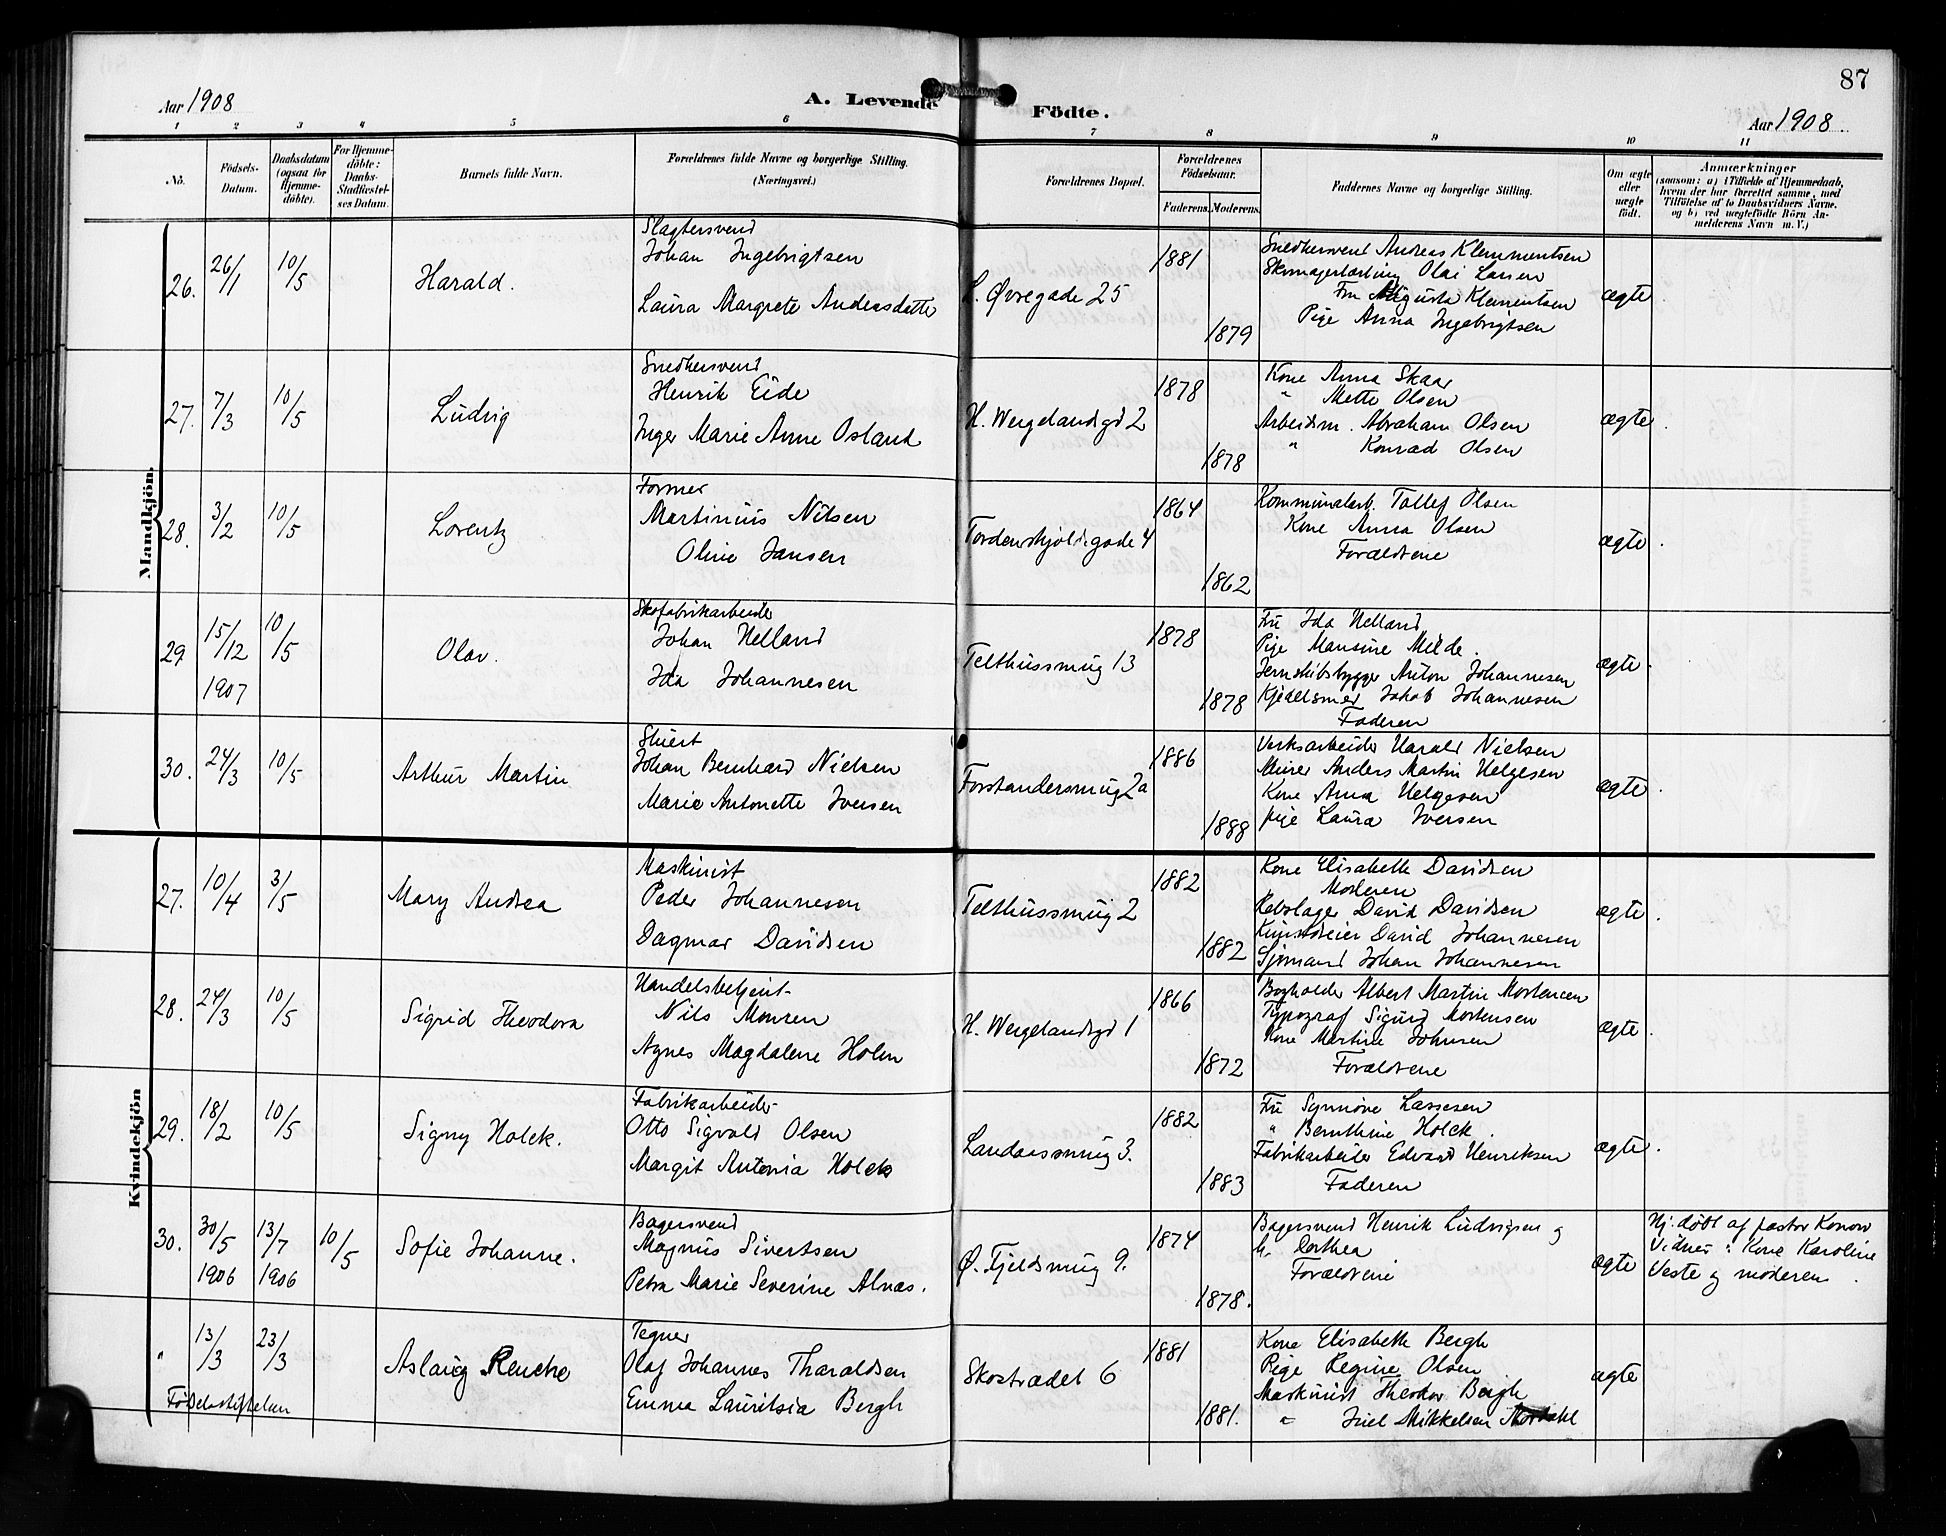 87
Aar 1908
A. Levende Födte.
Aar 1908.
1 2 3 4 5 6 7 8 9 10 11
No.
Födsels-
Datum.
Daabsdatum
(ogsaa for
Hjemme-
döbte).
For Hjemme-
döbte:
Daabs-
Stadfæstel-
ses Datum.
Barnets fulde Navn.
Forældrenes fulde Navne og borgerlige Stilling.
(Næringsvei.)
Forældrenes Bopæl.
Forældrenes
Födselsaar.
Faderens. Moderens.
Faddernes Navne og borgerlige Stilling.
Om ægte
eller
uægte
födt.
Anmærkninger
(saasom: a) i Tilfælde af Hjemmedaab,
hvem der har forrettet samme, med
Tilföielse af to Daabsvidners Navne,
og b) ved uægtefödte Börn An-
melderens Navn m. V.)
Mandkjön.
26. 26/1 10/5
Harald.
Slagtersvend
Johan Ingebrigtsen
Laura Margrete Andreasdatter
L. Øvregade 25
1881
1879
Snedkersvend Andreas Klemmentsen
Skomagerlærling Olai Larsen
Fru Augusta Klementsen
Pige Anna Ingebrigtsen
ægte
27. 7/3 10/5
Ludvig
Snedkersvend
Henrik Eide
Inger Marie Anne Osland
H. Wergelandsgd 2
1878
1878
Kone Anna Skaar
" Mette Olsen
Arbeidsm. Abraham Olsen
" Konrad Olsen
ægte
28. 3/2 10/5
Lorentz
Former
Martinius Nilsen
Oline Jansen
Tordenskjoldsgade 4
1864
1862
Kommunalarb. Tollef Olsen
Kone Anna Olsen
Forældrene
ægte.
29 15/12 1907 10/5
Olav.
Skofabrikarbeider
Johan Helland
Ida Johannesen
Telthussmug 13
1878
1878
Fru Ida Helland
Pige Mansine Milde.
Jernskibsbygger Anton Johannesen
Kjedelsmed Jakob Johannesen
Faderen
ægte.
30. 24/3 10/5
Arthur Martin
Stuert
Johan Bernhard Nielsen
Marie Antonette Iversen
Forstandersmug 2a
1886
1888
Verksarbeider Harald Nielsen
Murer Anders Martin Helgesen
Kone Anna Helgesen
pige Laura Iversen
ægte.
Kvindekjön
27. 10/4 3/5
Mary Andrea
Maskinist
Peder Johannesen
Dagmar Davidsen
Telthussmug 2
1882
1882
Kone Elisabeth Davidsen
Moderen
Rebslager David Davidsen
Kunstdreier David Johannesen
Sjømand Johan Johannesen
ægte.
28. 24/3 10/5
Sigrid Theodora
Handelsbetjent
Nils Monsen
Agnes Magdalene Holm
H. Wergelandsgd 1
1866
1872
Bogholder Albert Martin Mortensen
Typograf Sigurd Mortensen
Kone Martine Johnsen
Forældrene
ægte.
29. 18/2 10/5
Signy Holck.
Fabrikarbeider
Otto Sigvald Olsen
Margit Antonia Holck
Landaassmug 3.
1882
1883
Fru Synnøve Lassesen
" Bernthine Holck.
Fabrikarbeider Edvard Henriksen
Faderen
ægte.
30. 30/5 1906 13/7 1906 10/5
Sofie Johanne.
Bagersvend
Magnus Sivertsen
Petra Marie Severine Alnæs.
Ø. Fjeldsmug 9.
1874
1878.
Bagersvend Henrik Ludvigsen og
h. Dorthea
Forældrene
ægte
Hj. døbt af pastor Konow
Vidner: Kone Karoline
Veste og moderen.
" 13/3 23/3
Fødselsstiftelsen
Aslaug Rencke
Tegner
Olaf Johannes Tharaldsen
Emma Lauritsia Bergh
Skostrædet 6
1881
1881.
Kone Elisabeth Bergh
Pige Regine Olsen
Maskinist Theodor Bergh
" Juel Mikkelsen
ægte